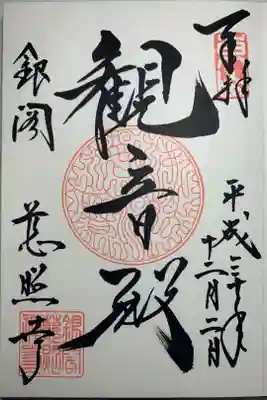 奉拝
平成三十年
十二月二日
観音殿
銀閣
慈照寺